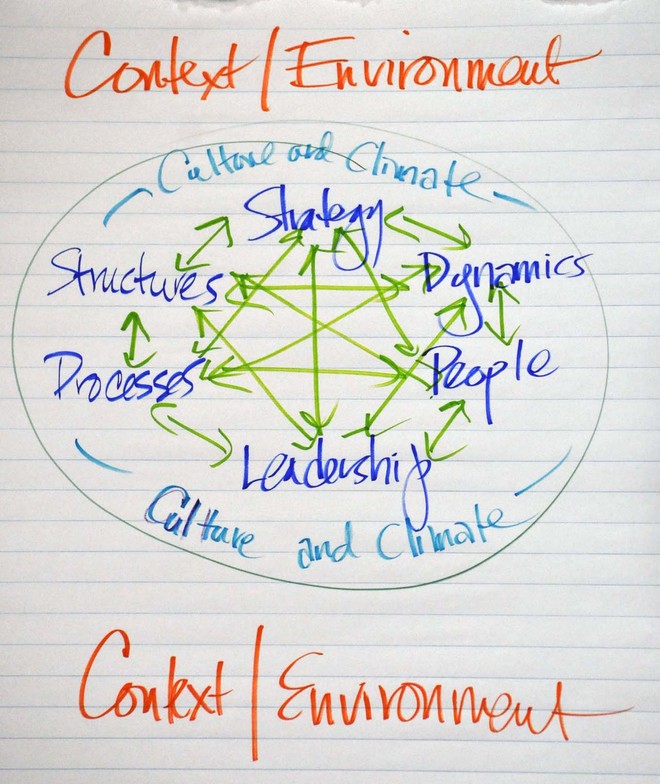 Context/Environment
Culture and Climate
Strategy
Structures Dynamics
Processes People
Leadership
Culture and Climate
Context/Environment